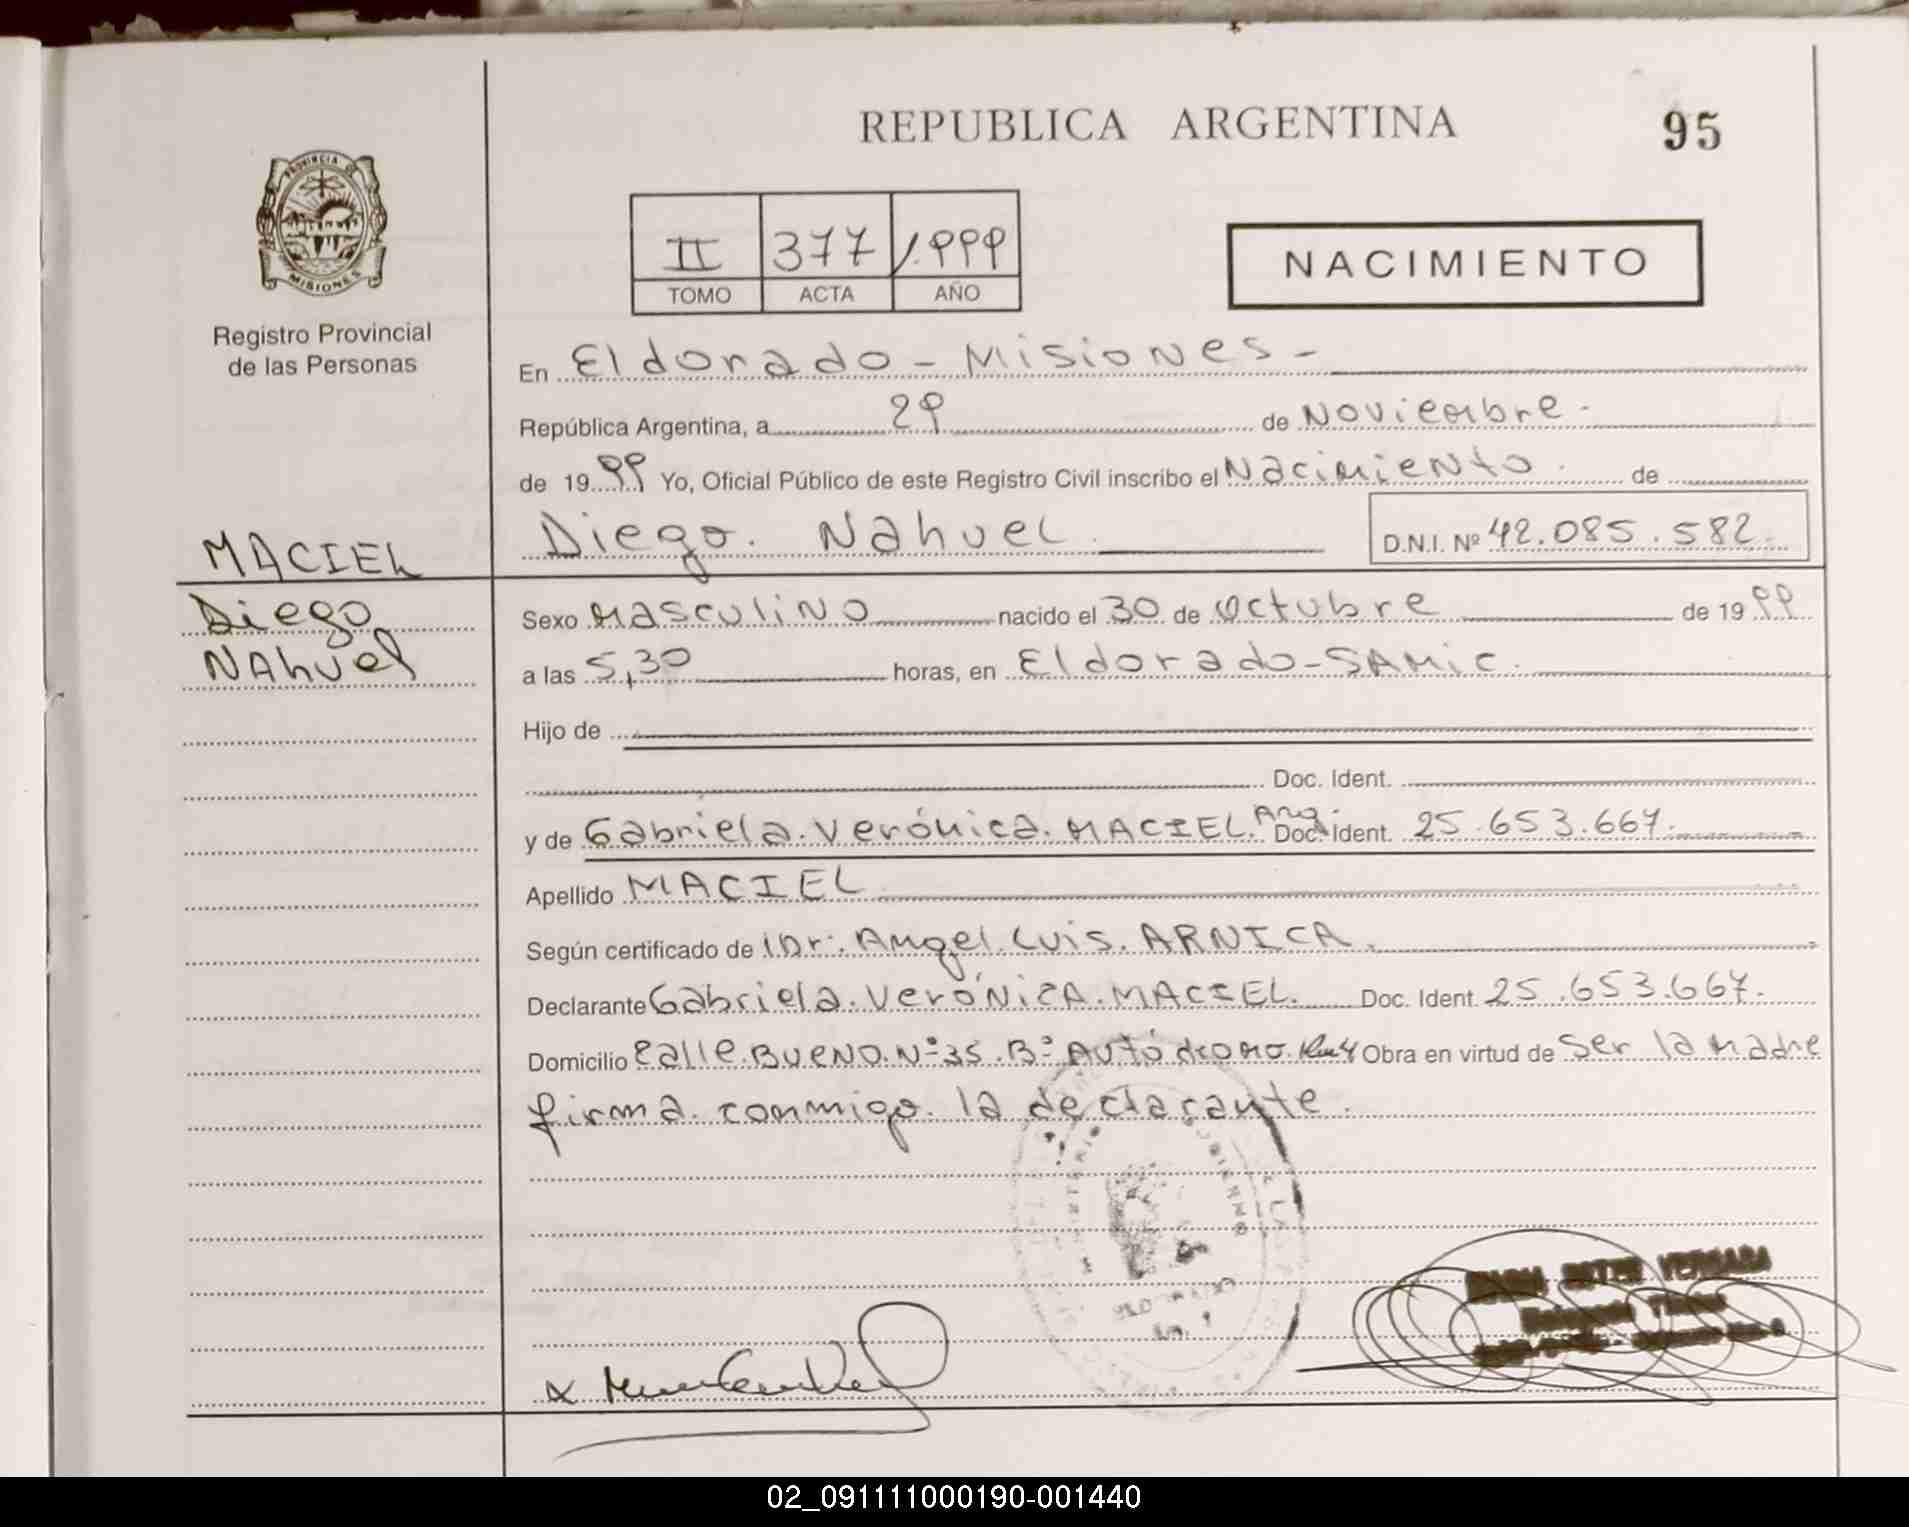 REPUBLICA ARGENTINA
95
PROVINCIA DE
MISIONES
Registro Provincial
de las Personas
II 377 1.999
TOMO ACTA AÑO
NACIMIENTO
En Eldorado - Misiones -
República Argentina, a 29 de Noviembre.
de 1999 Yo, Oficial Público de este Registro Civil inscribo el Nacimiento. de
Diego. Nahuel. D.N.I. Nº 42.085.582.
MACIEL
Diego
NAhuel
Sexo Masculino nacido el 30 de Octubre de 1999
a las 5,30 horas, en Eldorado-SAMic.
Hijo de
Doc. Ident.
y de Gabriela. Verónica. MACIEL. Arg. Doc. Ident. 25.653.667.
Apellido MACIEL
Según certificado de Dr. Angel. Luis. ARNICA.
Declarante Gabriela. VeróNicA. MACIEL. Doc. Ident. 25.653.667.
Domicilio Calle. BUENO. Nº 35. Bº Autódromo. Obra en virtud de Ser la madre
firma. conmigo. la declarante.
VERGARA
02_091111000190-001440